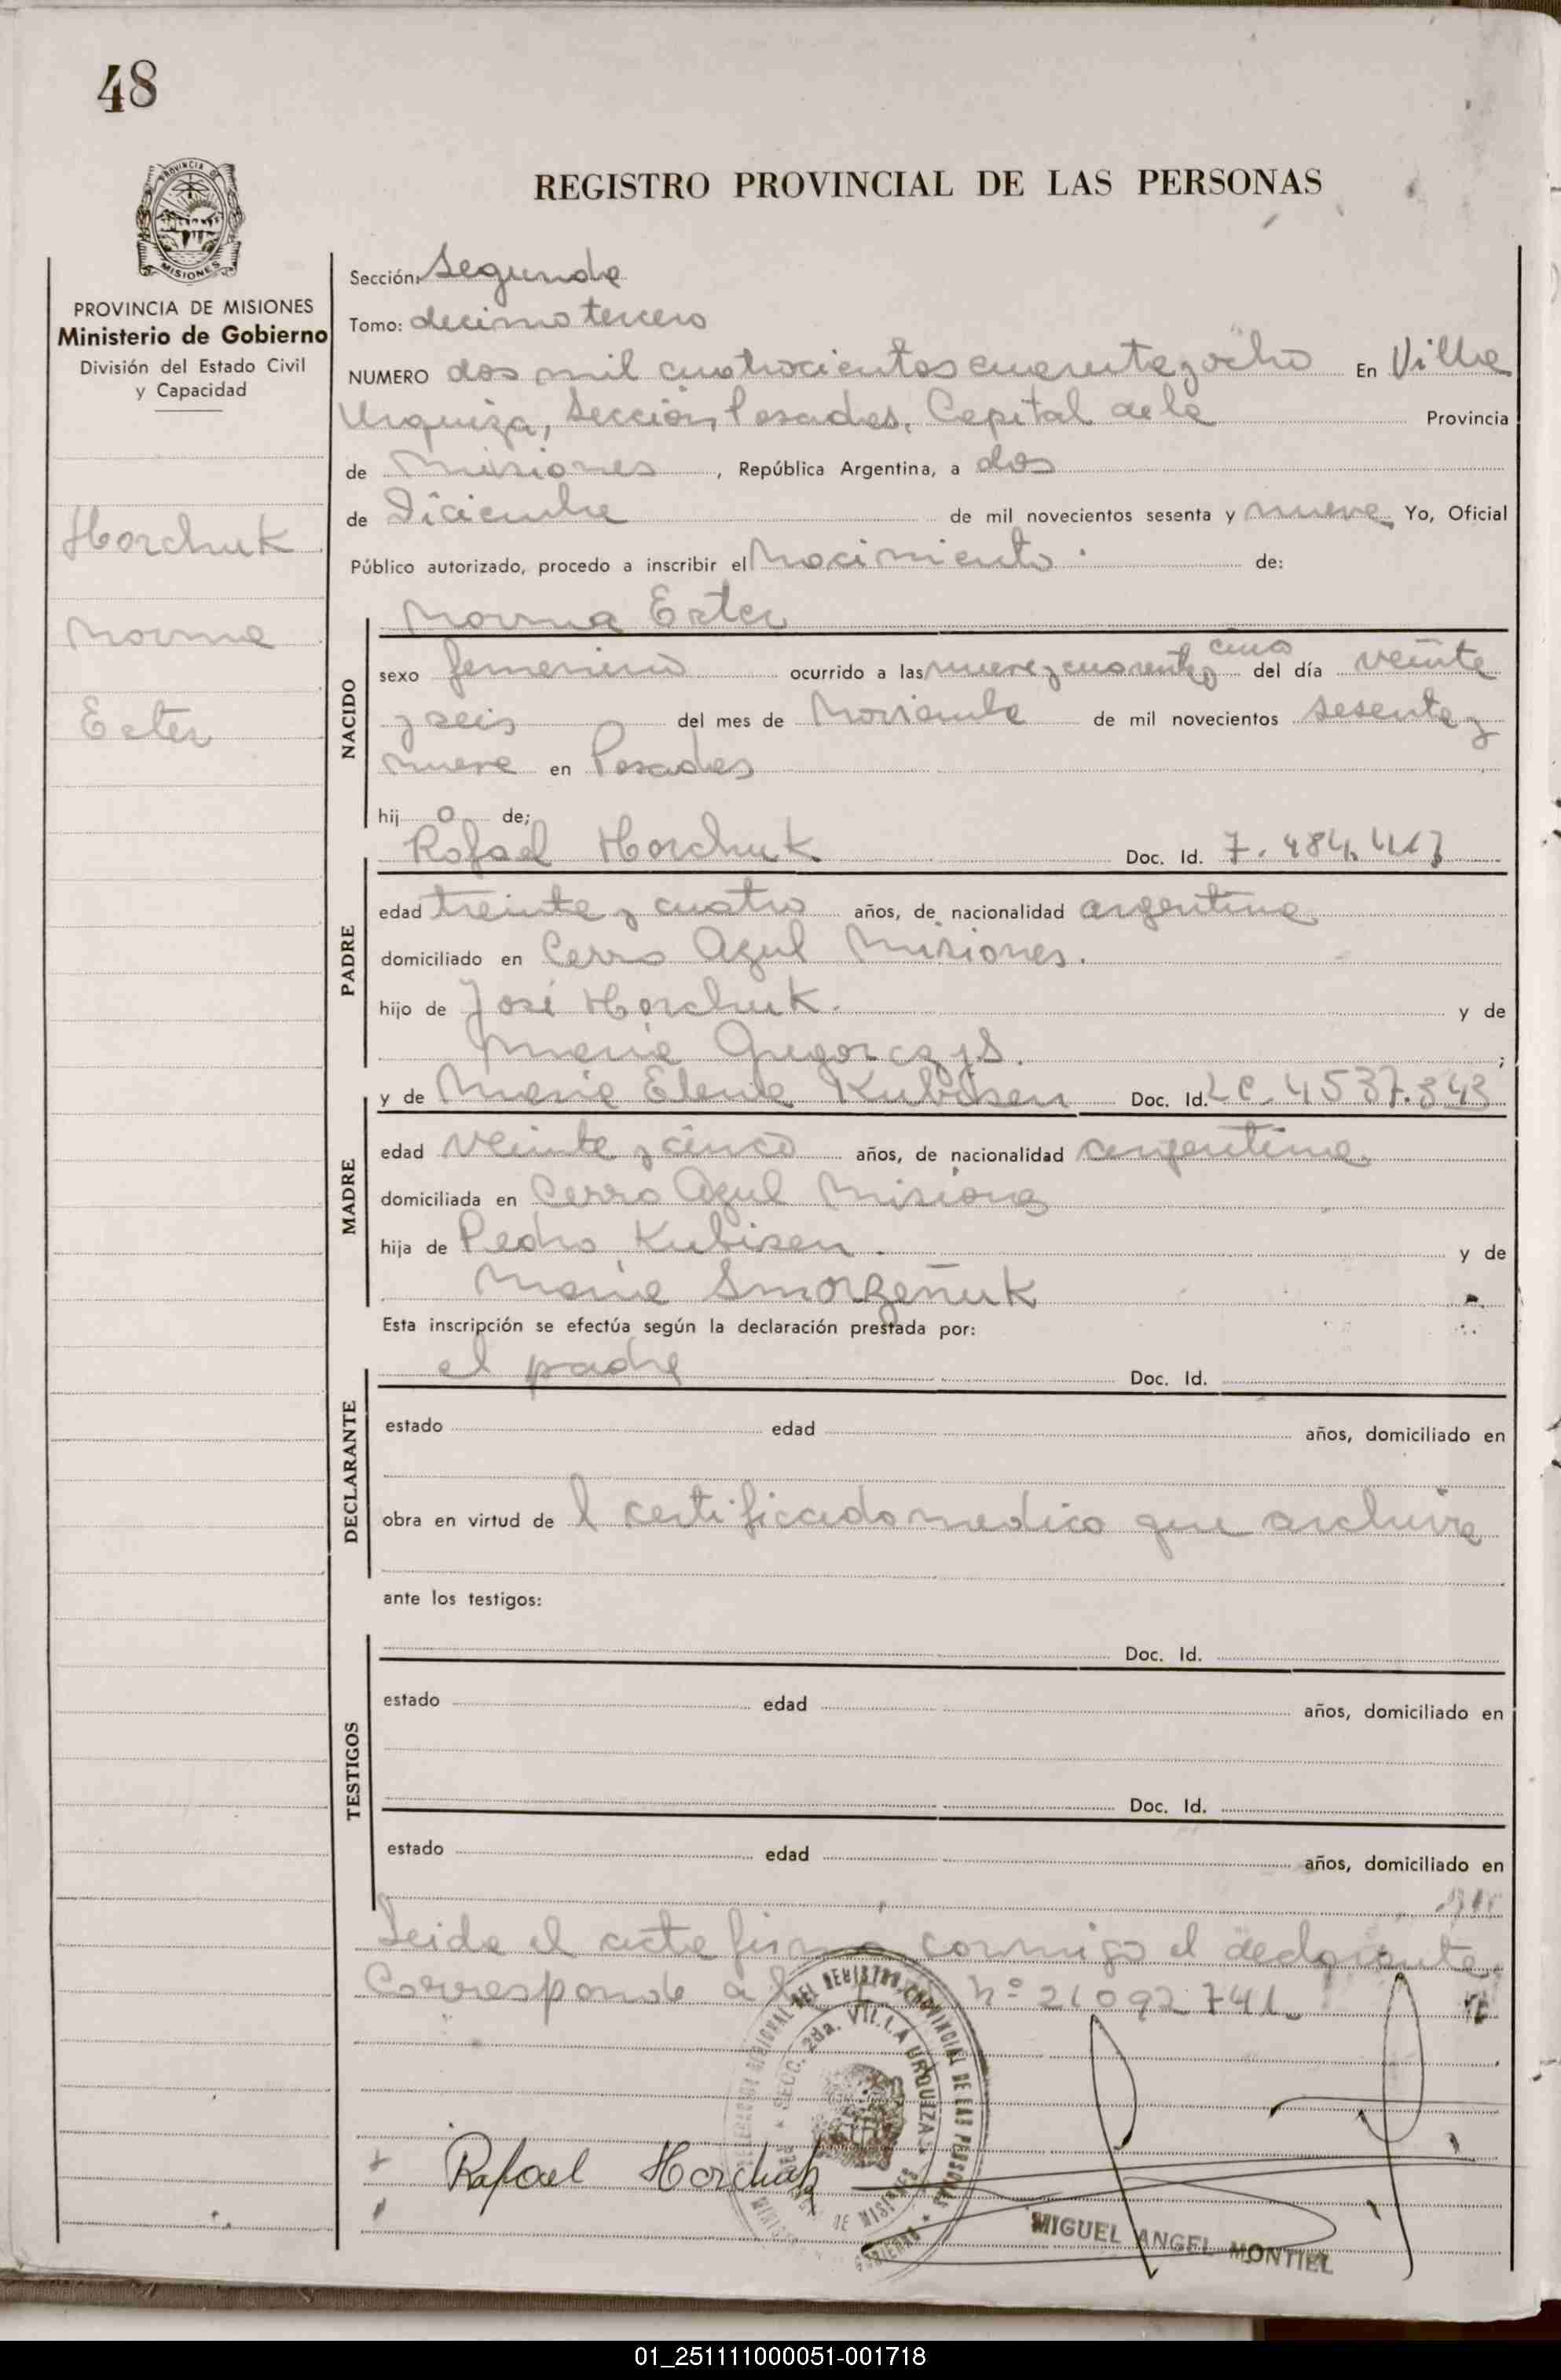 48
REGISTRO PROVINCIAL DE LAS PERSONAS
PROVINCIA DE MISIONES
Ministerio de Gobierno
División del Estado Civil
y Capacidad
Horchuk
Norma
Ester
Sección: Segunda
Tomo: decimo tercero
NUMERO dos mil cuatrocientos cuarenta y ocho En Villa
Urquiza, Sección Posadas, Capital de la Provincia
de Misiones, República Argentina, a dos
de Diciembre de mil novecientos sesenta y nueve Yo, Oficial
Público autorizado, procedo a inscribir el Nacimiento de:
Norma Ester
NACIDO
cinco
sexo femenino ocurrido a las nueve y cuarenta y del día veinte
y seis del mes de Noviembre de mil novecientos sesenta y
nueve en Posadas
hij a de;
Rafael Horchuk Doc. Id. 7.484.417
PADRE
edad treinta y cuatro años, de nacionalidad argentina
domiciliado en Cerro Azul Misiones.
hijo de José Horchuk. y de
Maria ;
y de Maria Elena Kubisen Doc. Id. LC. 4537.343
MADRE
edad veinte y cinco años, de nacionalidad argentina
domiciliada en Cerro Azul Misiones
hija de Pedro Kubisen. y de
Maria Smorzeñuk
Esta inscripción se efectúa según la declaración prestada por:
el padre Doc. Id.
DECLARANTE
estado edad años, domiciliado en
obra en virtud de l certificado medico que archiva
ante los testigos:
TESTIGOS
Doc. Id.
estado edad años, domiciliado en
Doc. Id.
estado edad años, domiciliado en
Leida el acta firma conmigo el declarante.
Corresponde a nº 21092741
DEL REGISTRO PROVINCIAL DE LAS PERSONAS
SECC. 2da. VILLA URQUIZA
DE MISIONES
Rafael Horchuk
MIGUEL ANGEL MONTIEL
01_251111000051-001718